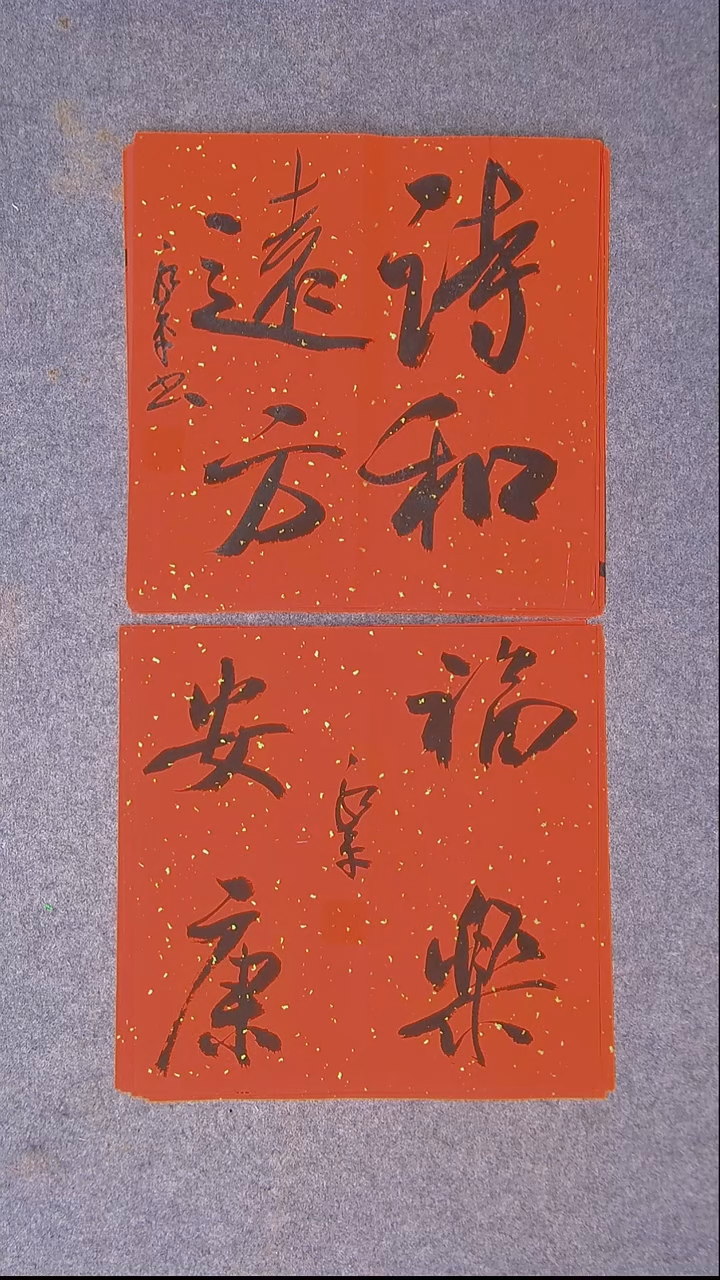 詩和
遠方
福樂
安康